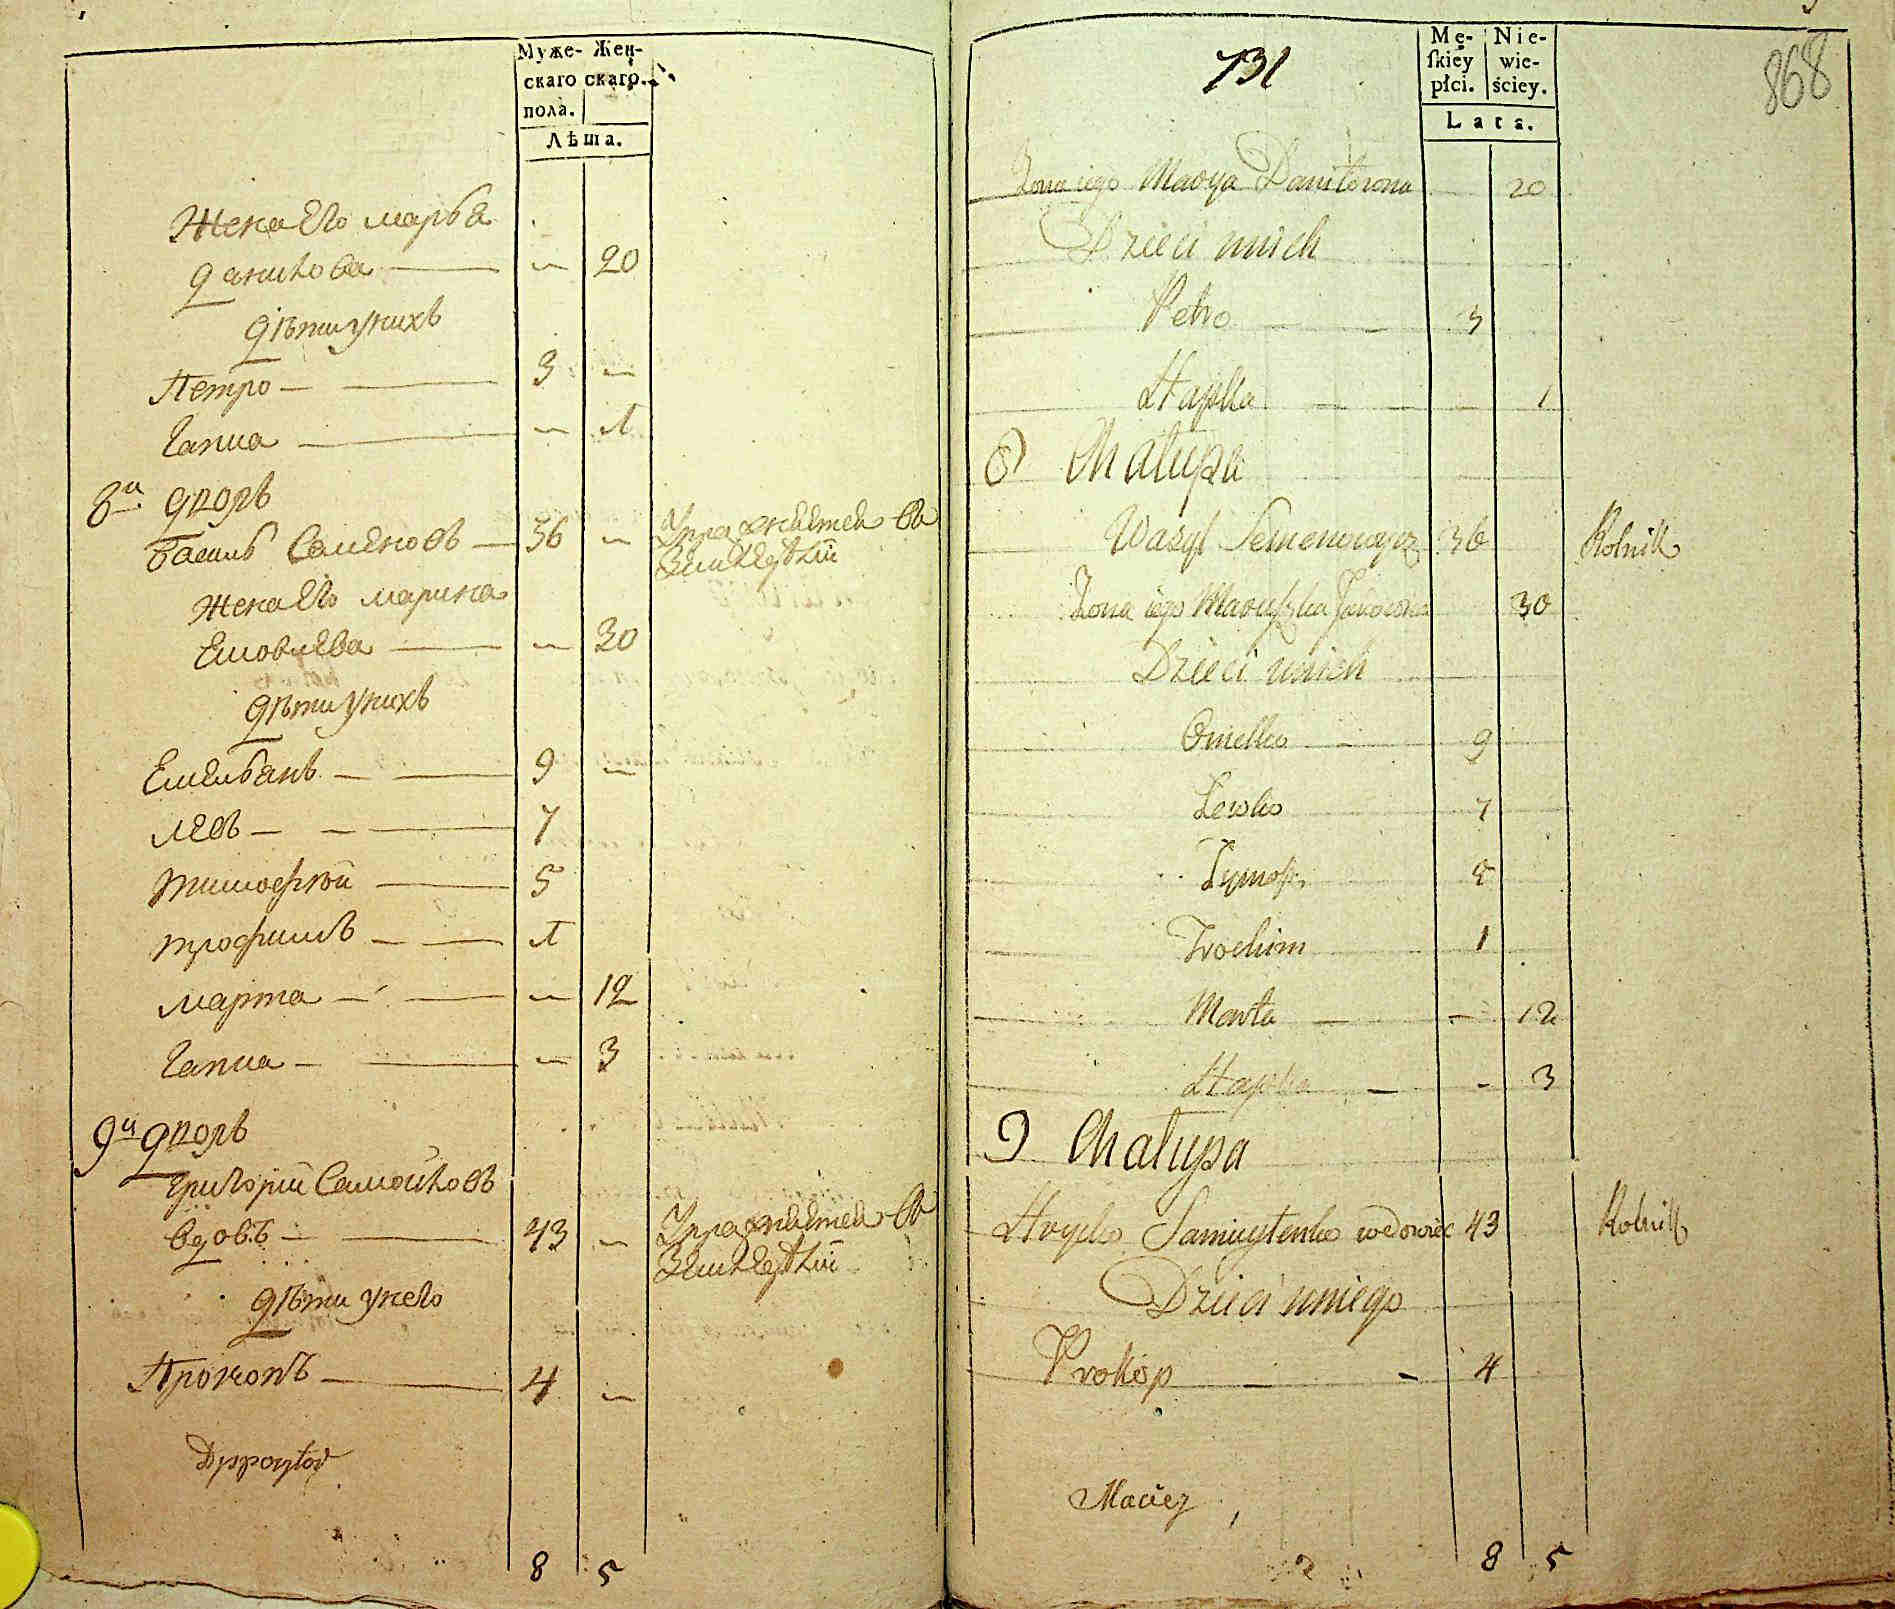 Муже- Жен-
скаго скаго.
пола.
Лѣта.
Жена Его марья
данилова — 20
дѣти унихъ
Петро — 3 —
Гапка — 1
8й дворъ
василь Семеновъ — 36 — Упражняетца въ
Земледелии
Жена Его марина
— 30
дѣти унихъ
Емельянъ — 9 —
левъ — 7
тимофей — 5
трофимъ — 1
марта — 12
Гапка — 3
9й дворъ
григорий Самойловъ
вдовъ — 43 — Упражняетца въ
Земледелии
дѣти унего
Прокопъ — 4 —
8 5
731
868
Mę- Nie-
skiey wie-
płci. ściey.
Lata.
Zona iego Marya Daniłowna 20
Dzieci unich
Petro — 3
Hapka — 1
8) Chałupa
Wasyl Semenowicz 36 Rolnik
Zona iego Maruszka 30
Dzieci unich
Omelko — 9
Lewko 7
Tymofi 5
Trochim 1
Marta — 12
Hapka — 3
9 Chałupa
Hrycko Samuylenko wdowiec 43 Rolnik
Dzieci uniego
Prokop — 4
Maciey
8 5